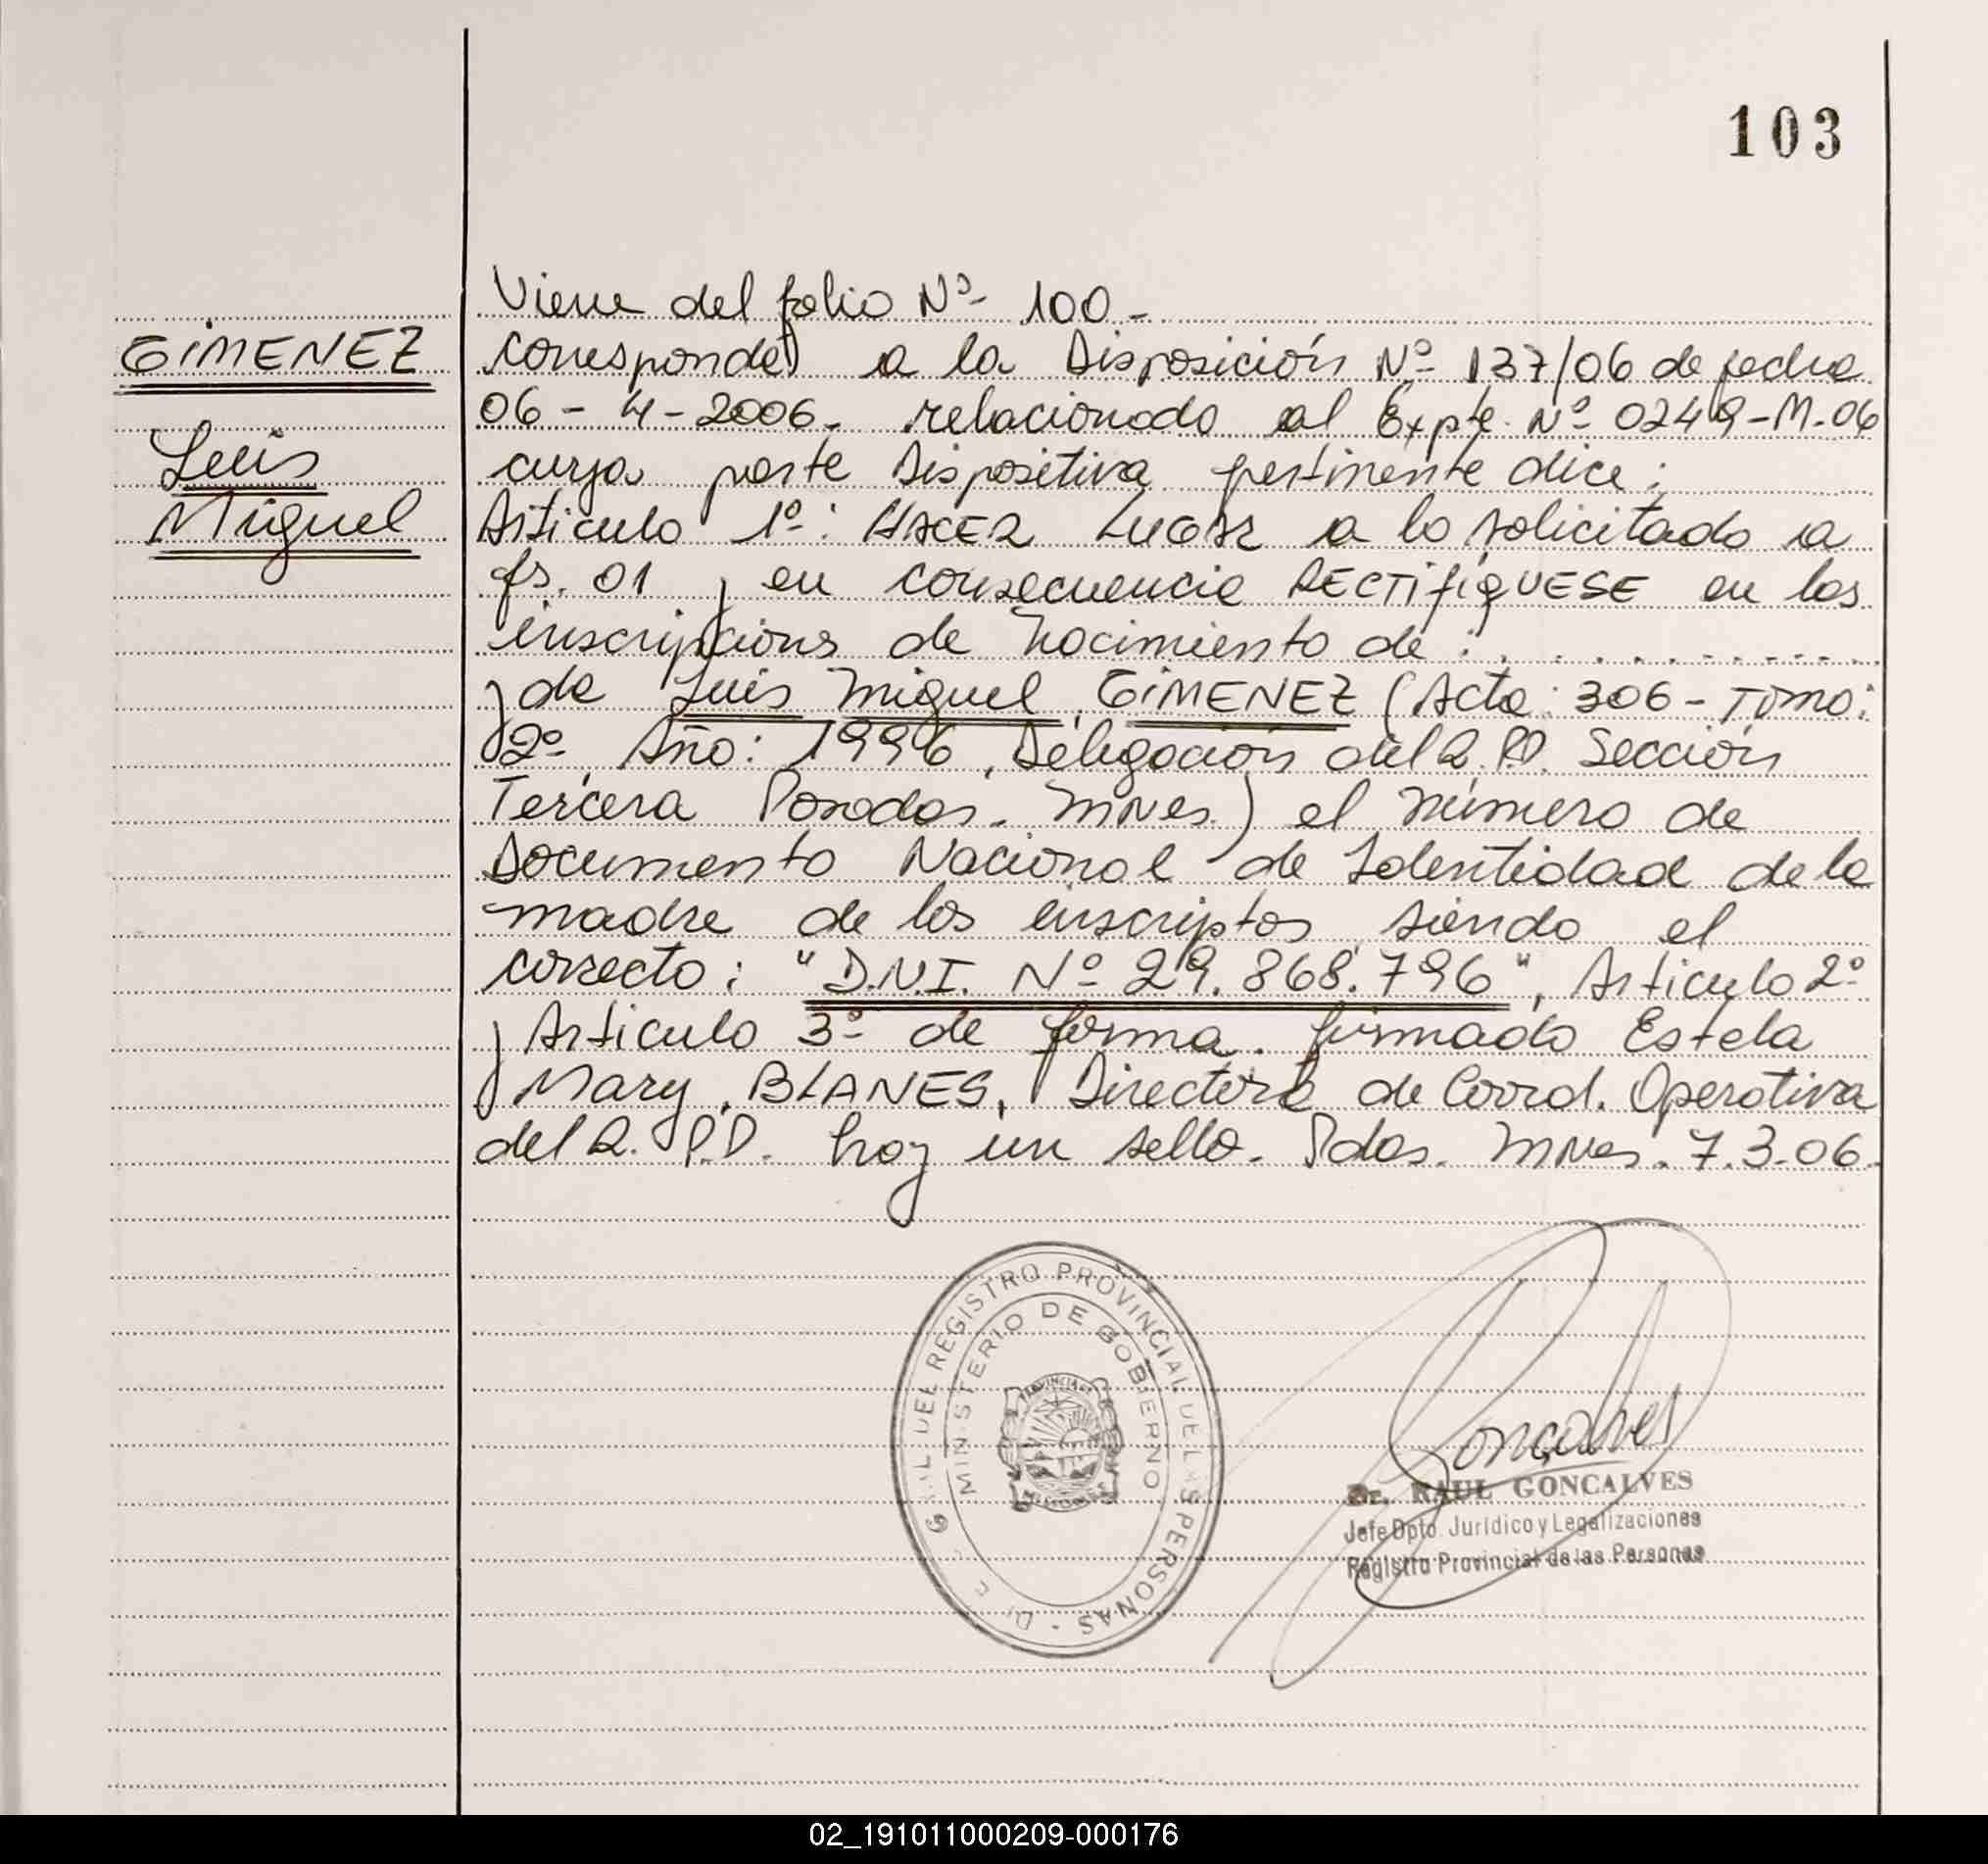 103
GIMENEZ
Luis
Miguel
Viene del folio Nº 100 -
corresponde a la Disposición Nº 137/06 de fecha
06 - 4 - 2006. relacionado al Expte. Nº 0249-M-06
cuya parte Dispositiva pertinente dice:
Articulo 1º: HACER LUGAR a lo solicitado a
fs. 01 y en consecuencia RECTIFIQUESE en las
inscripcions de nacimiento de : . . . . . . . . . .
y de Luis Miguel GIMENEZ (Acta: 306 - Tomo:
2º, Año: 1996, Delegación del R.P.P. Sección
Tercera Posadas. Mnes.) el número de
Documento Nacional de Identidad de la
madre de los inscriptos siendo el
correcto: "D.N.I. Nº 29.868.796", Articulo 2º
y Articulo 3º de forma. firmado Estela
Mary BLANES, Directora de Coord. Operativa
del R.P.P. hay un sello. Pdas. Mnes. 7.3.06.
REGISTRO PROVINCIAL DE LAS PERSONAS
MINISTERIO DE GOBIERNO
Goncalves
Dr. RAUL GONCALVES
Jefe Dpto. Jurídico y Legalizaciones
Registro Provincial de las Personas
02_191011000209-000176